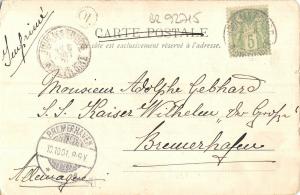 82 92715
Imprimé
CARTE POSTALE
Ce côté est exclusivement réservé à l'adresse.
5
Monsieur Adolphe Gebhard
S. S. Kaiser Wilhelm „der Große"
Bremerhafen
BREMERHAVEN
10.10.01. 8-9V
Allemagne